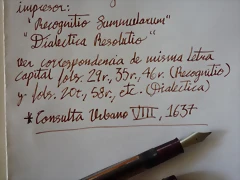 impresor:
"Recognitio Summularum"
"Dialectica Resolutio"
ver correspondencia de misma letra
capital fols. 29r, 35r, 46r (Recognitio)
y fols. 20r, 58r, etc. (Dialectica)
* Consulta Urbano VIII, 1637